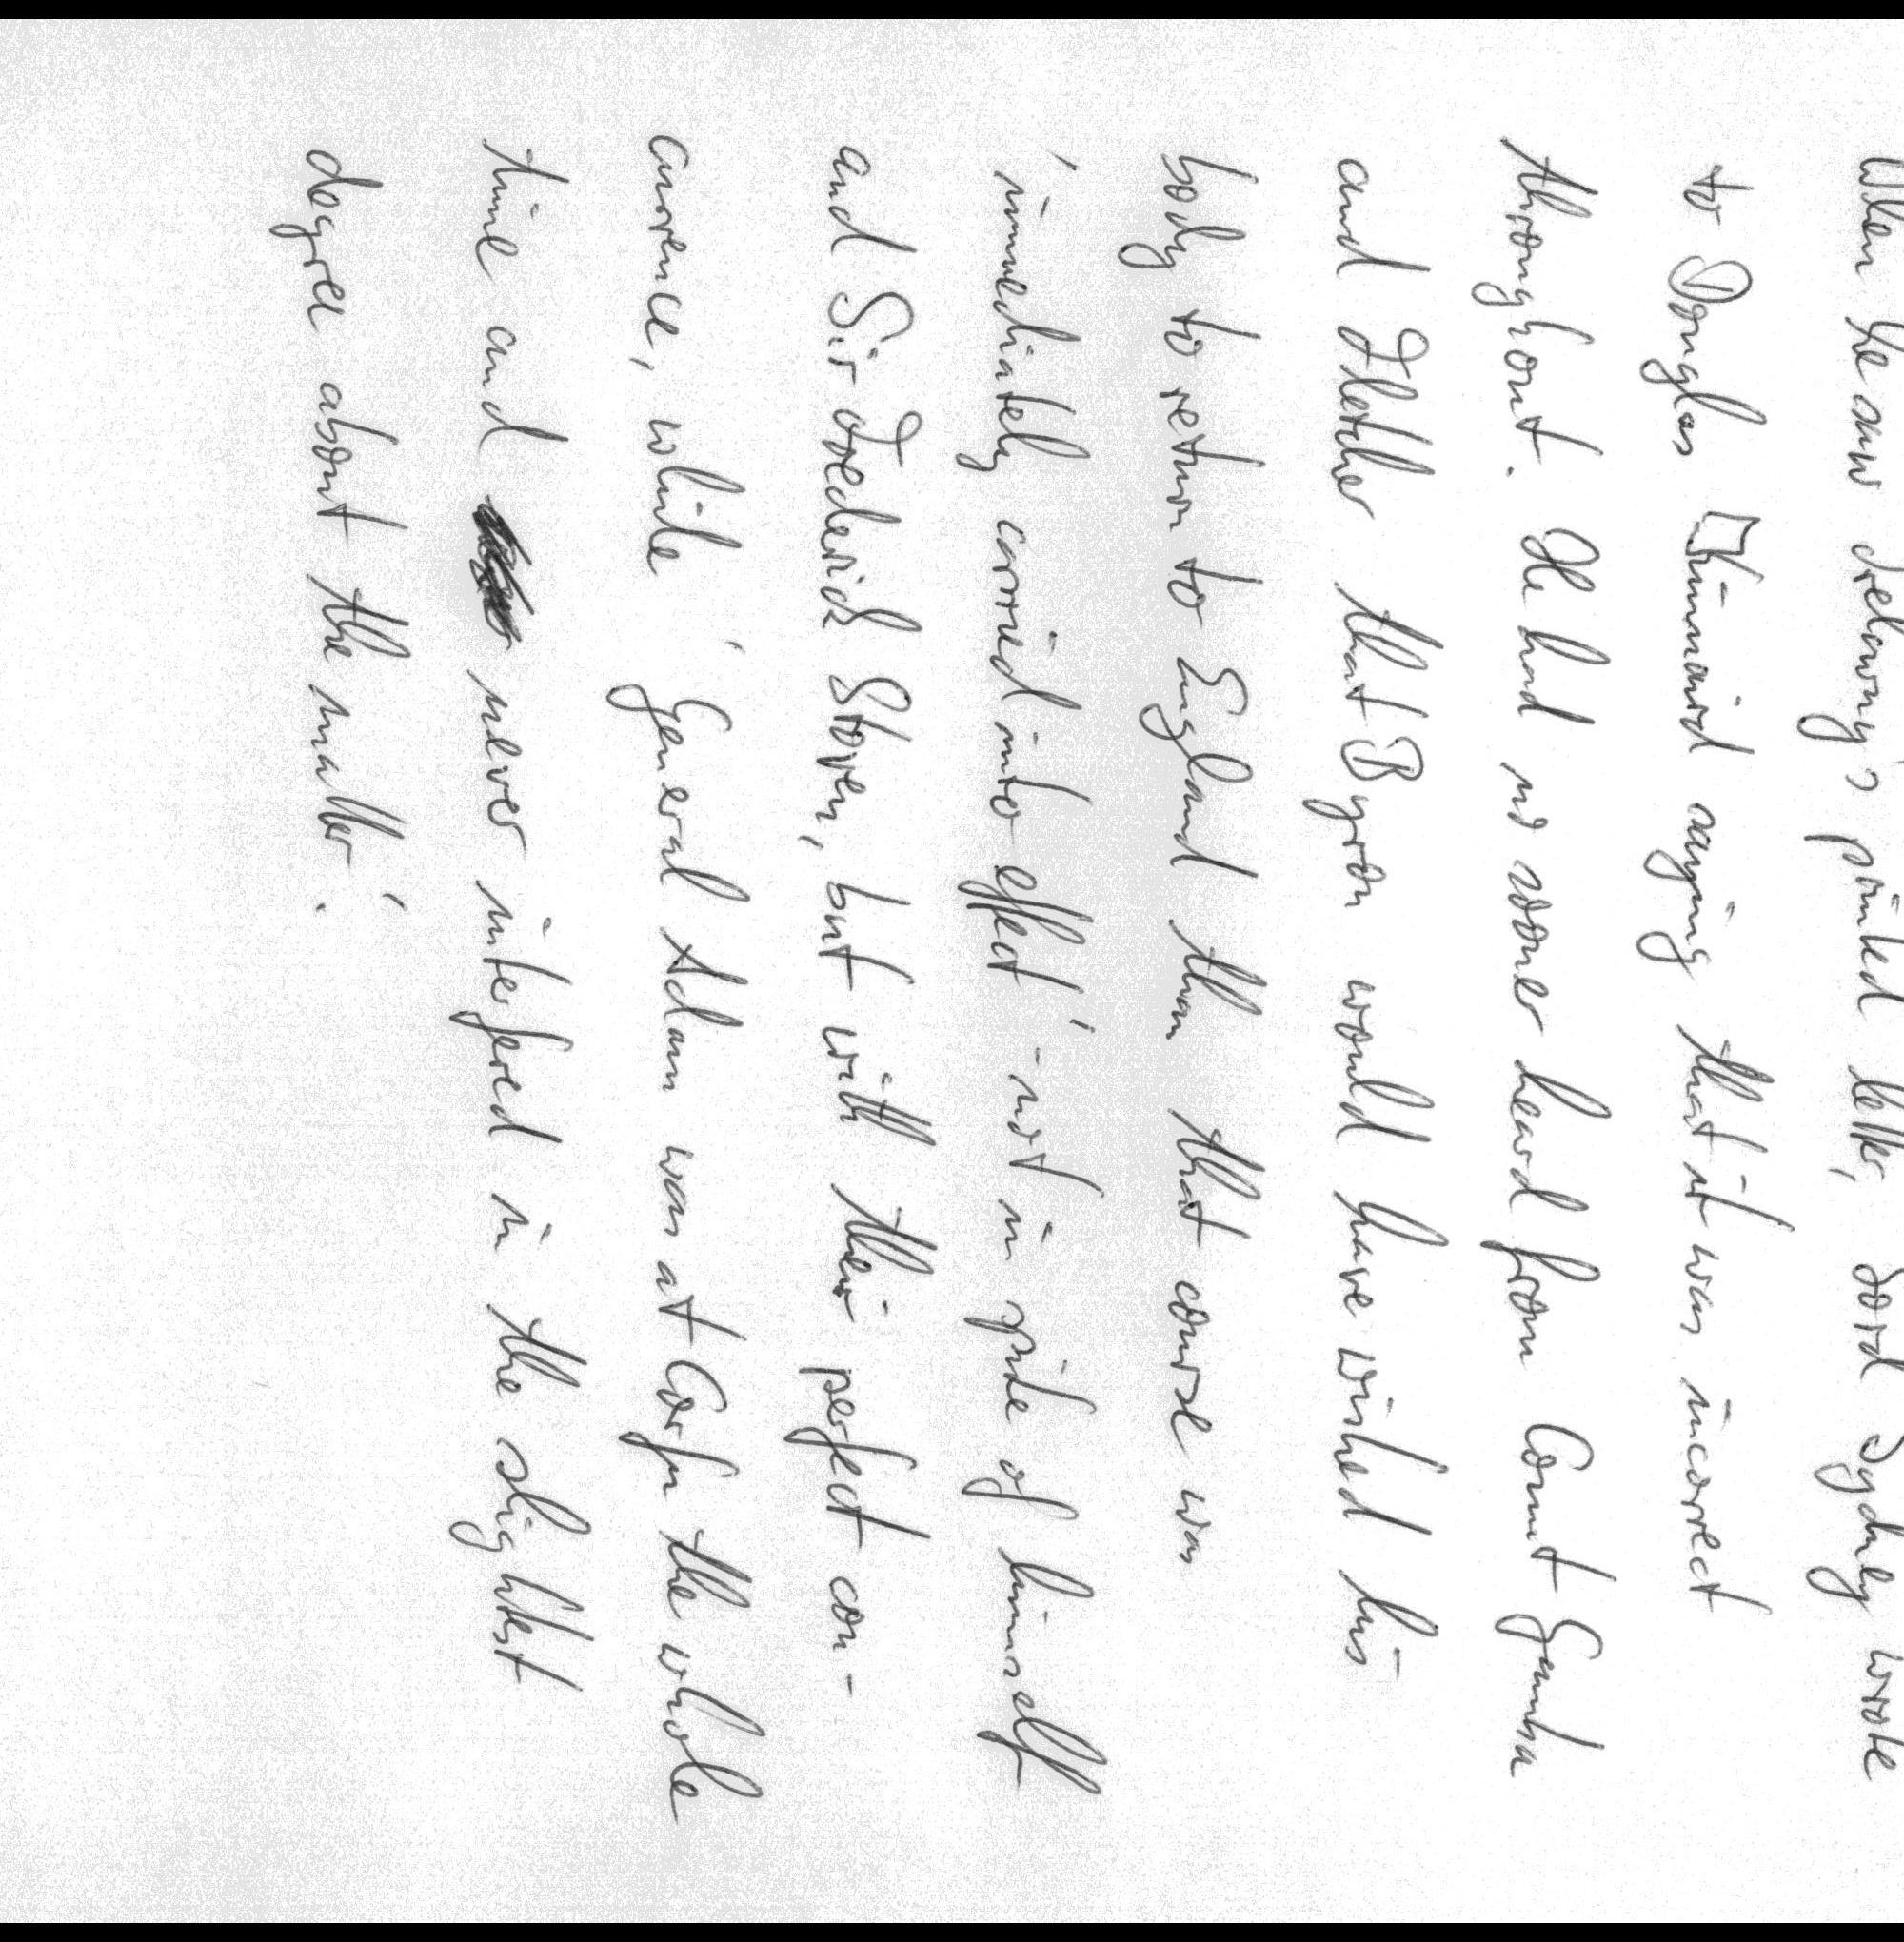 When he saw Trelawny's printed letter, Lord Sydney wrote
to Douglas Kinnaird saying that it was incorrect
throughout. He had no sooner heard from Count Gamba
and Fletcher that Byron would have wished his
body to return to England than that course was
'immediately carried into effect' - not in spite of himself
and Sir Frederick Stoven, but with their perfect con-
currence, while 'General Adam was at Corfu the whole
time and never interfered in the slightest
degree about the matter'.